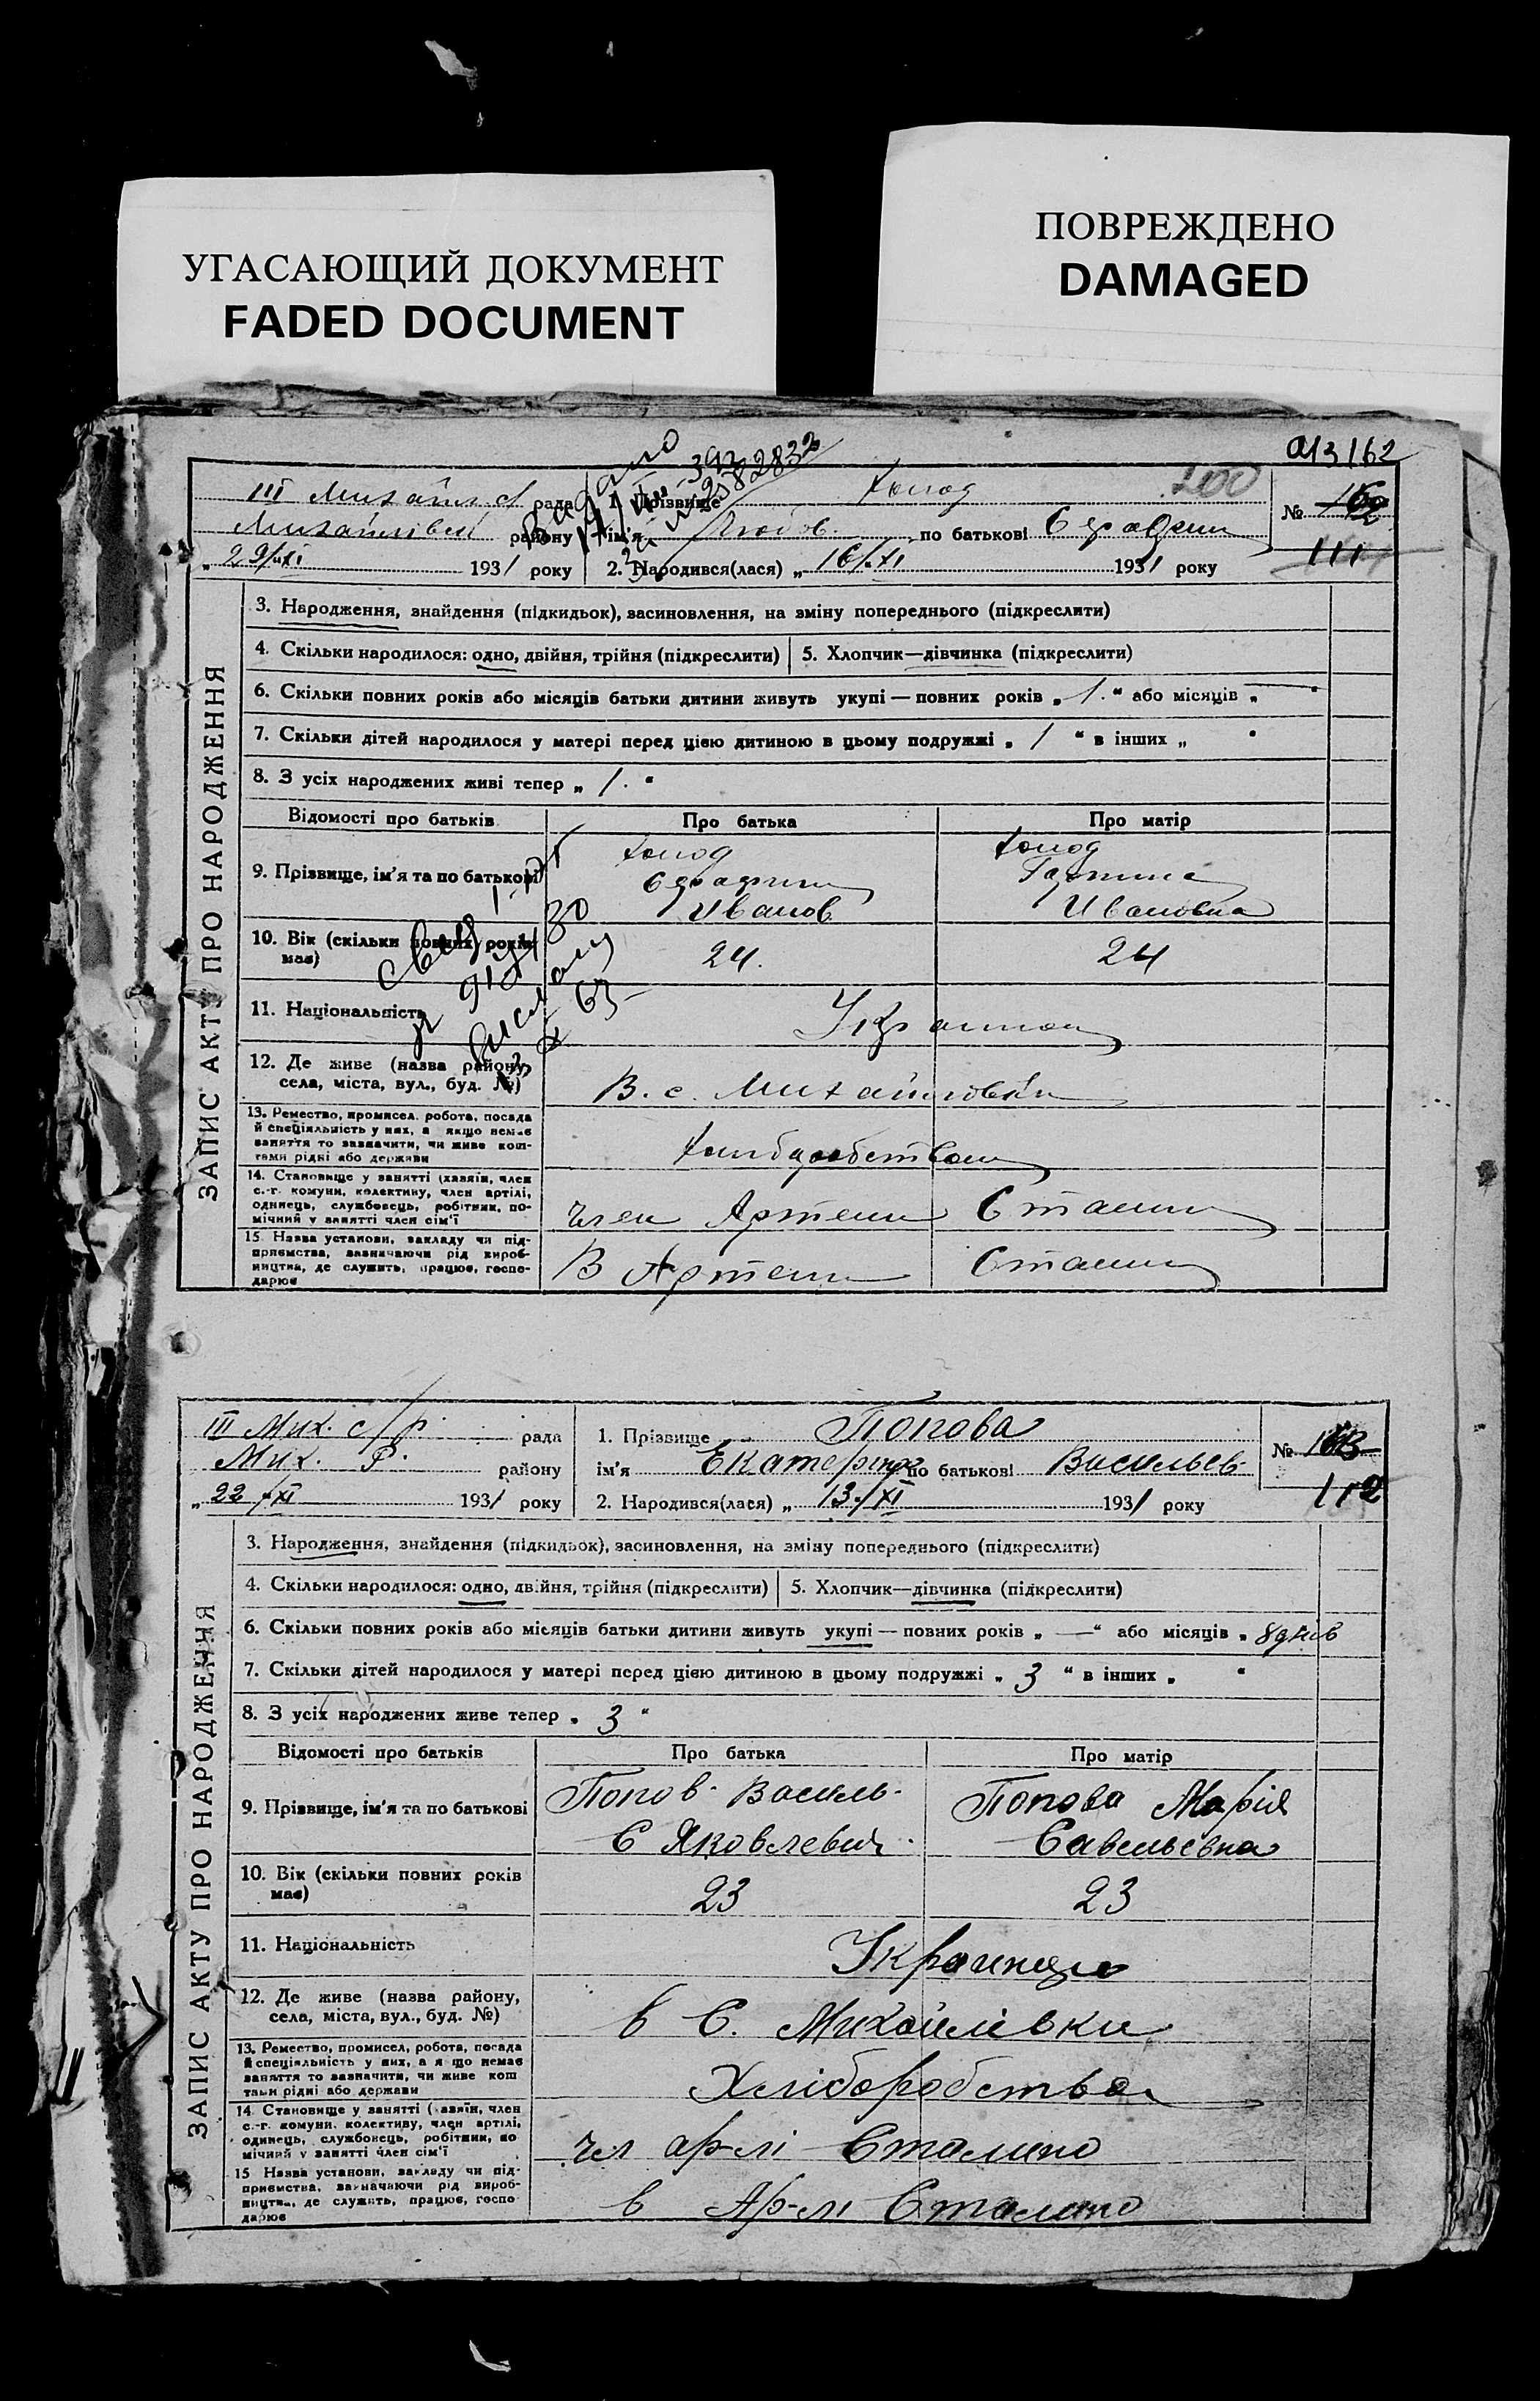 УГАСАЮЩИЙ ДОКУМЕНТ
FADED DOCUMENT
ПОВРЕЖДЕНО
DAMAGED
ЗАПИС АКТУ ПРО НАРОДЖЕННЯ
рада
району
"29/XI 1931 року
1. Прізвище
200
ім'я Любов по батькові
2. Народився(лася) „16/XI 1931 року
№
111
3. Народження, знайдення (підкидьок), засиновлення, на зміну попереднього (підкреслити)
4. Скільки народилося: одно, двійня, трійня (підкреслити)
5. Хлопчик—дівчинка (підкреслити)
6. Скільки повних років або місяців батьки дитини живуть укупі — повних років „1." або місяців „—"
7. Скільки дітей народилося у матері перед цією дитиною в цьому подружжі „1" в інших „ "
8. З усіх народжених живі тепер „1."
Відомості про батьків
Про батька
Про матір
9. Прізвище, ім'я та по батькові
Иванов
Ивановна
10. Вік (скільки повних років має)
24.
24
11. Національність
12. Де живе (назва району, села, міста, вул., буд. №)
В. с. Михайловки
13. Ремество, промисел, робота, посада
й спеціяльність у них, а якщо немає
заняття то зазначити, чи живе кош-
тами рідні або держави
14. Становище у занятті (хазяїн, член
с.-г. комуни, колективу, член артілі,
одинець, службовець, робітник, по-
мічний у занятті член сім'ї
член Артели Сталин
15. Назва установи, закладу чи під-
приємства, зазначаючи рід вироб-
ництва, де служить, працює, госпо-
дарює
В Артели Сталин
ЗАПИС АКТУ ПРО НАРОДЖЕННЯ
III Мих. с/р. рада
Мих. Р. району
„22/XI 1931 року
1. Прізвище Попова
ім'я Екатерина по батькові Васильев.
2. Народився(лася) „13./XI 1931 року
№
112
3. Народження, знайдення (підкидьок), засиновлення, на зміну попереднього (підкреслити)
4. Скільки народилося: одно, двійня, трійня (підкреслити)
5. Хлопчик—дівчинка (підкреслити)
6. Скільки повних років або місяців батьки дитини живуть укупі — повних років „—" або місяців „8 днів
7. Скільки дітей народилося у матері перед цією дитиною в цьому подружжі „3" в інших „ "
8. З усіх народжених живе тепер „3"
Відомості про батьків
Про батька
Про матір
9. Прізвище, ім'я та по батькові
Попов Василь
Яковлевич
Попова Марія
Савельевна
10. Вік (скільки повних років має)
23
23
11. Національність
Украинцы
12. Де живе (назва району,
села, міста, вул., буд. №)
в С. Михайлівки
13. Ремество, промисел, робота, посада
й спеціяльність у них, а якщо немає
заняття то зазначити, чи живе кош
тами рідні або держави
Хліборобство
14. Становище у занятті (хазяїн, член
с.-г. комуни, колективу, член артілі,
одинець, службовець, робітник, по
мічний у занятті член сім'ї
чл ар-лі Сталино
15 Назва установи, закладу чи під-
приємства, зазначаючи рід вироб-
ництва, де служить, працює, госпо
дарює
в Ар-лі Сталино